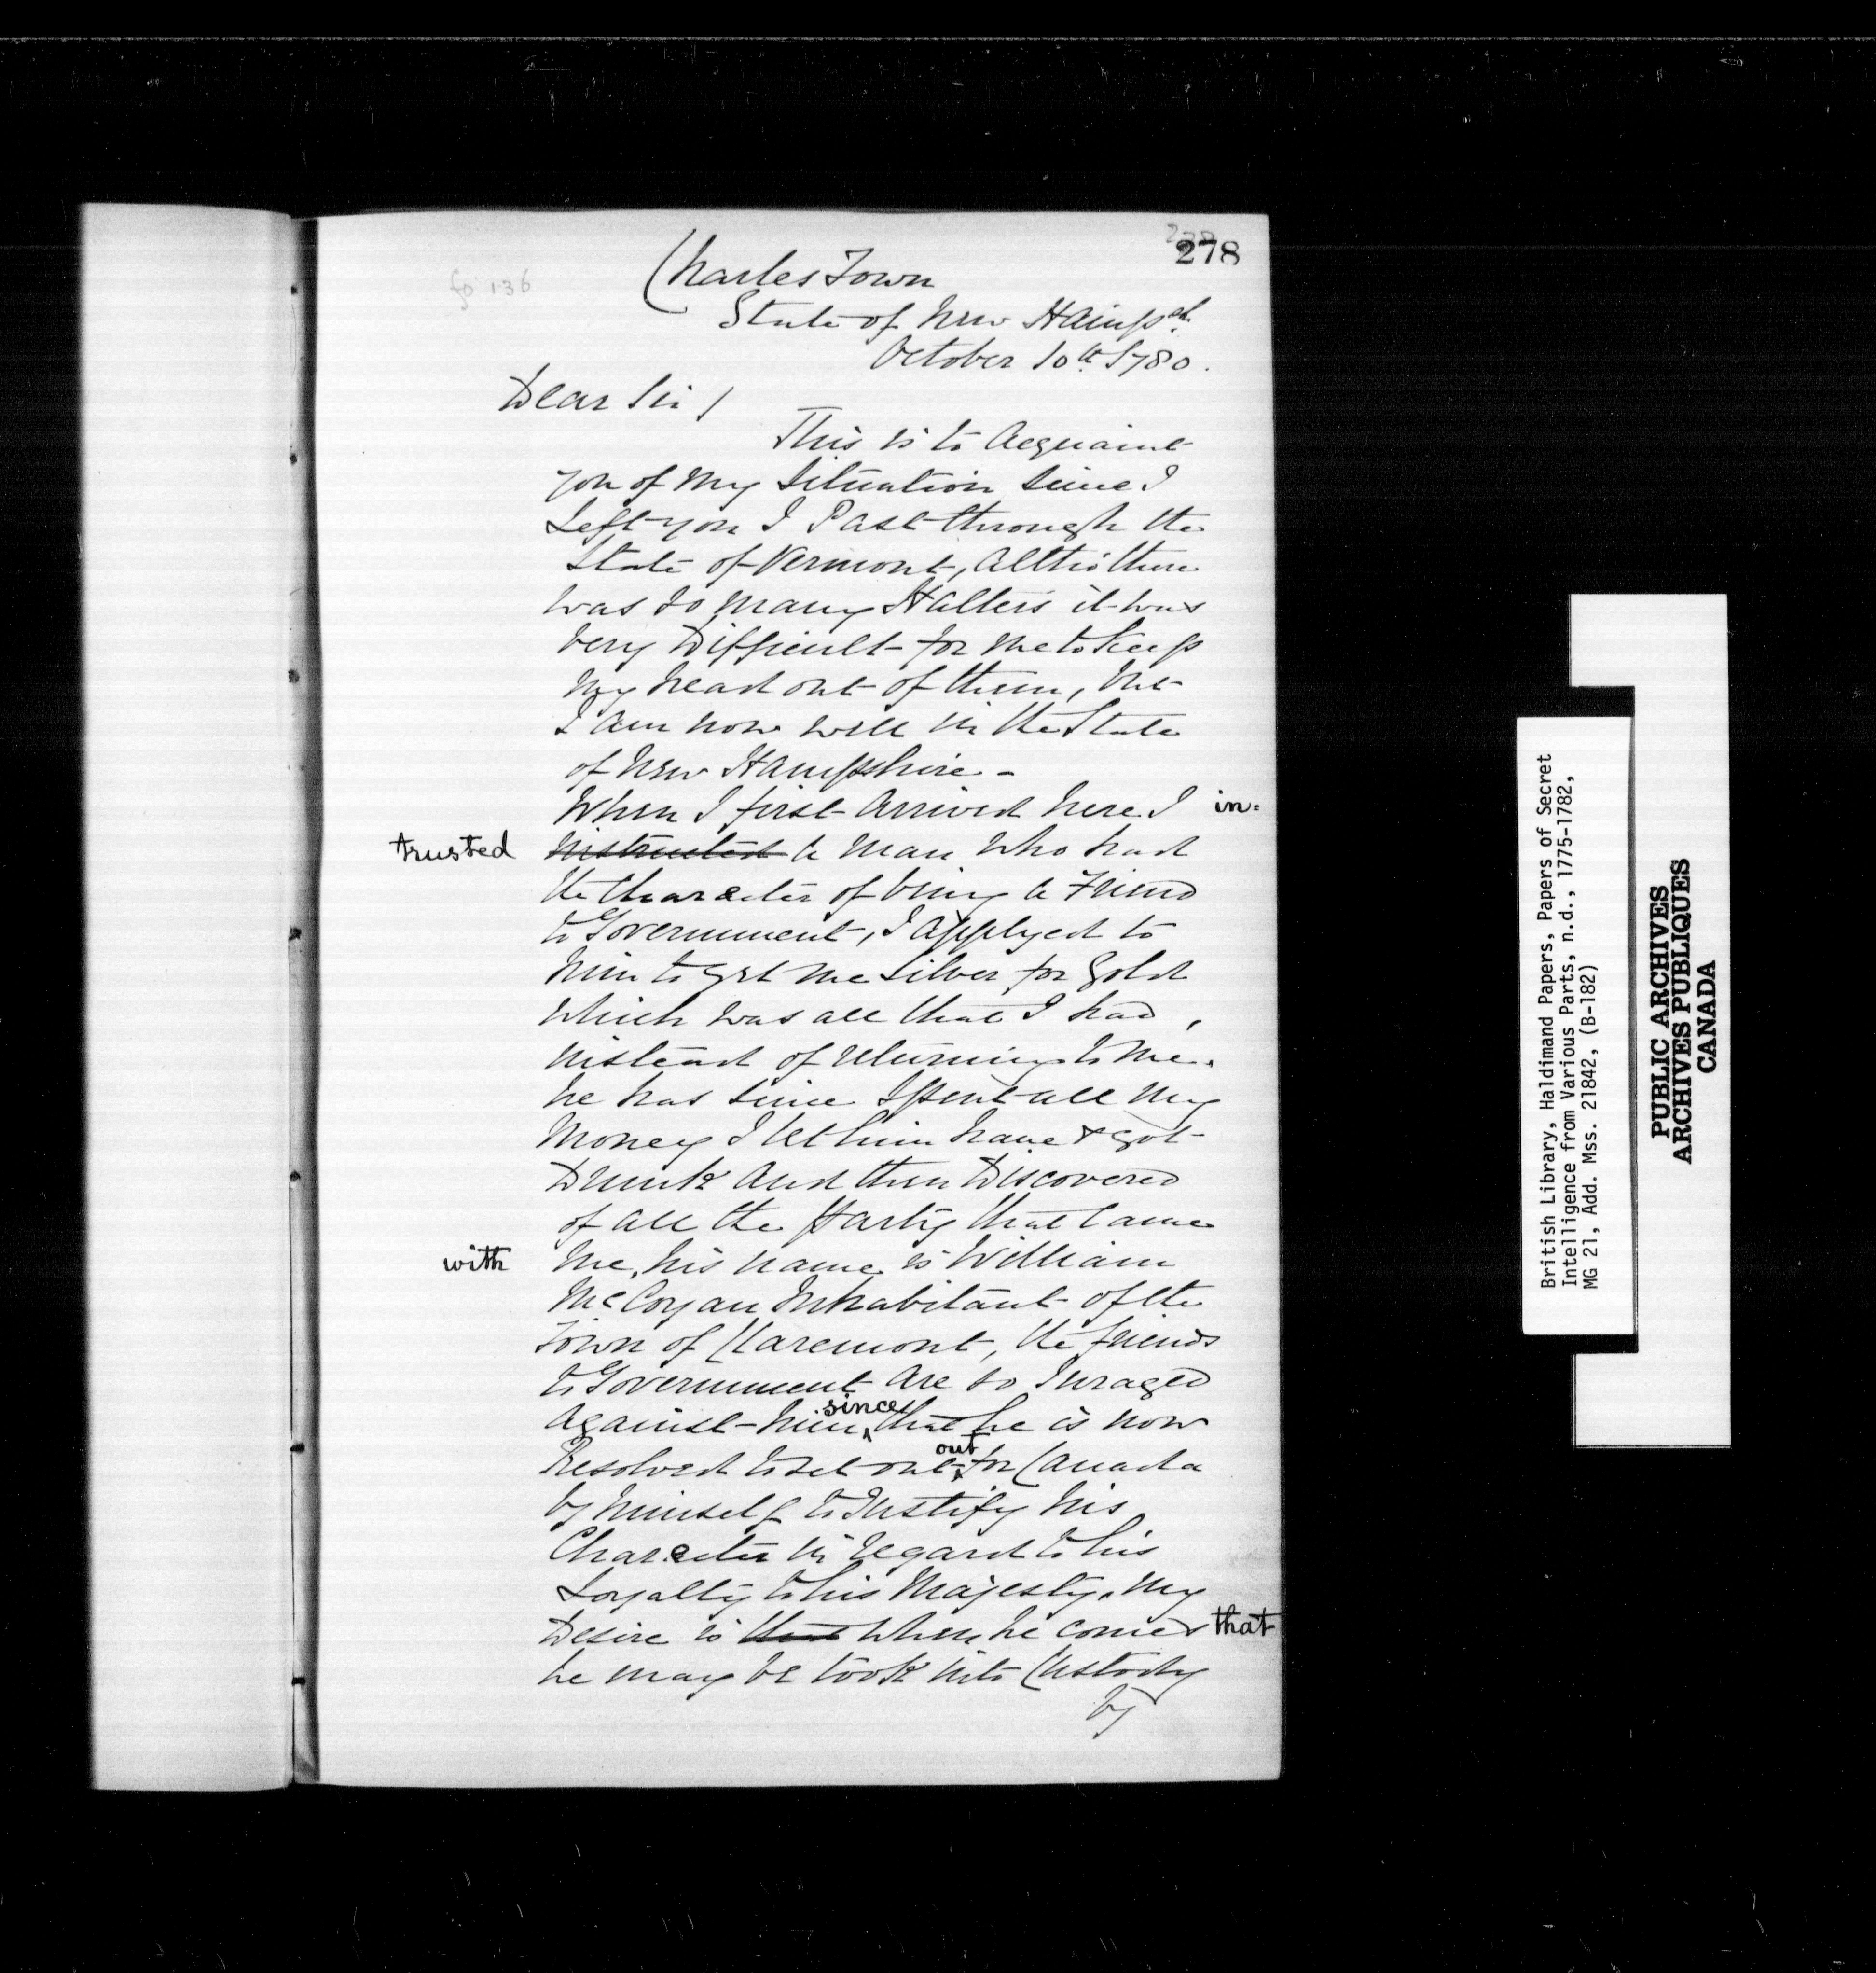 278
fo 136
Charles Town
State of New Hampsh.
October 10th 1780.
Dear Sir /
This is to Acquaint
you of My Situation Since I
Left you I Past through the
State of Vermont, Altho there
was so many Halters it was
very Difficult for me to Keep
My head out of them, but
I am now well in the State
of New Hampshire -
When I first Arrived here I in=
trusted instructed a Man Who had
the Character of being a Friend
to Government, I Applyed to
him to get me Silver for Gold
Which was all that I had,
instead of returning to me.
he has Since Spent all My
Money I let him have & got
Drunk And then Discovered
of all the Party that Came
with Me, his name is William
McCoy an Inhabitant of the
Town of Claremont, the friends
to Government Are so Inraged
Against him since that he is now
Resolved to set out out for Canada
by himself to Justify his
Character in regard to his
Loyalty to his Majesty, My
Desire is that when he comes that
he may be took into Custody
by
British Library, Haldimand Papers, Papers of Secret
Intelligence from Various Parts, n.d., 1775-1782,
MG 21, Add. Mss. 21842, (B-182)
PUBLIC ARCHIVES
ARCHIVES PUBLIQUES
CANADA